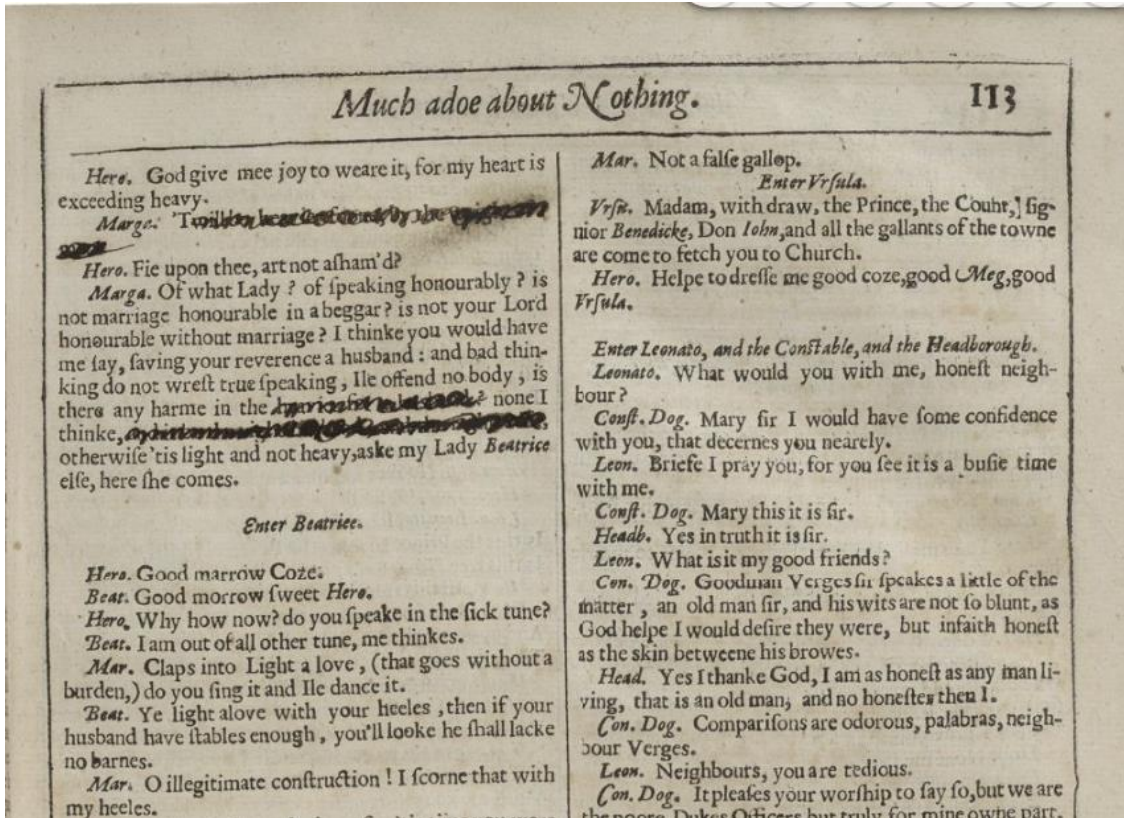 Much adoe about Nothing.
113
Hero. God give mee joy to weare it, for my heart is
exceeding heavy.
Marga. 'T
Hero. Fie upon thee, art not aſham'd?
Marga. Of what Lady ? of ſpeaking honourably ? is
not marriage honourable in a beggar? is not your Lord
honourable without marriage ? I thinke you would have
me ſay, ſaving your reverence a husband : and bad thin-
king do not wreſt true ſpeaking, Ile offend no body, is
there any harme in the none I
thinke,
otherwiſe 'tis light and not heavy,aske my Lady Beatrice
elſe, here ſhe comes.
Enter Beatrice.
Hero. Good marrow Coze.
Beat. Good morrow ſweet Hero.
Hero. Why how now? do you ſpeake in the ſick tune?
Beat. I am out of all other tune, me thinkes.
Mar. Claps into Light a love, (that goes without a
burden,) do you ſing it and Ile dance it.
Beat. Ye light alove with your heeles ,then if your
husband have ſtables enough, you'll looke he ſhall lacke
no barnes.
Mar. O illegitimate conſtruction ! I ſcorne that with
my heeles.
Mar. Not a falſe gallop.
Enter Vrſula.
Vrſu. Madam, with draw, the Prince, the Count,] ſig-
nior Benedicke, Don Iohn,and all the gallants of the towne
are come to fetch you to Church.
Hero. Helpe to dreſſe me good coze,good Meg,good
Vrſula.
Enter Leonato, and the Conſtable, and the Headborough.
Leonato. What would you with me, honeſt neigh-
bour?
Conſt. Dog. Mary ſir I would have ſome confidence
with you, that decernes you nearely.
Leon. Briefe I pray you, for you ſee it is a buſie time
with me.
Conſt. Dog. Mary this it is ſir.
Headb. Yes in truth it is ſir.
Leon. What is it my good friends?
Con. Dog. Goodman Verges ſir ſpeakes a little of the
matter , an old man ſir, and his wits are not ſo blunt, as
God helpe I would deſire they were, but infaith honeſt
as the skin betweene his browes.
Head. Yes I thanke God, I am as honeſt as any man li-
ving, that is an old man, and no honeſter then I.
Con. Dog. Compariſons are odorous, palabras, neigh-
bour Verges.
Leon. Neighbours, you are tedious.
Con. Dog. It pleaſes your worſhip to ſay ſo,but we are
the poore Dukes Officers but truly for mine owne part,